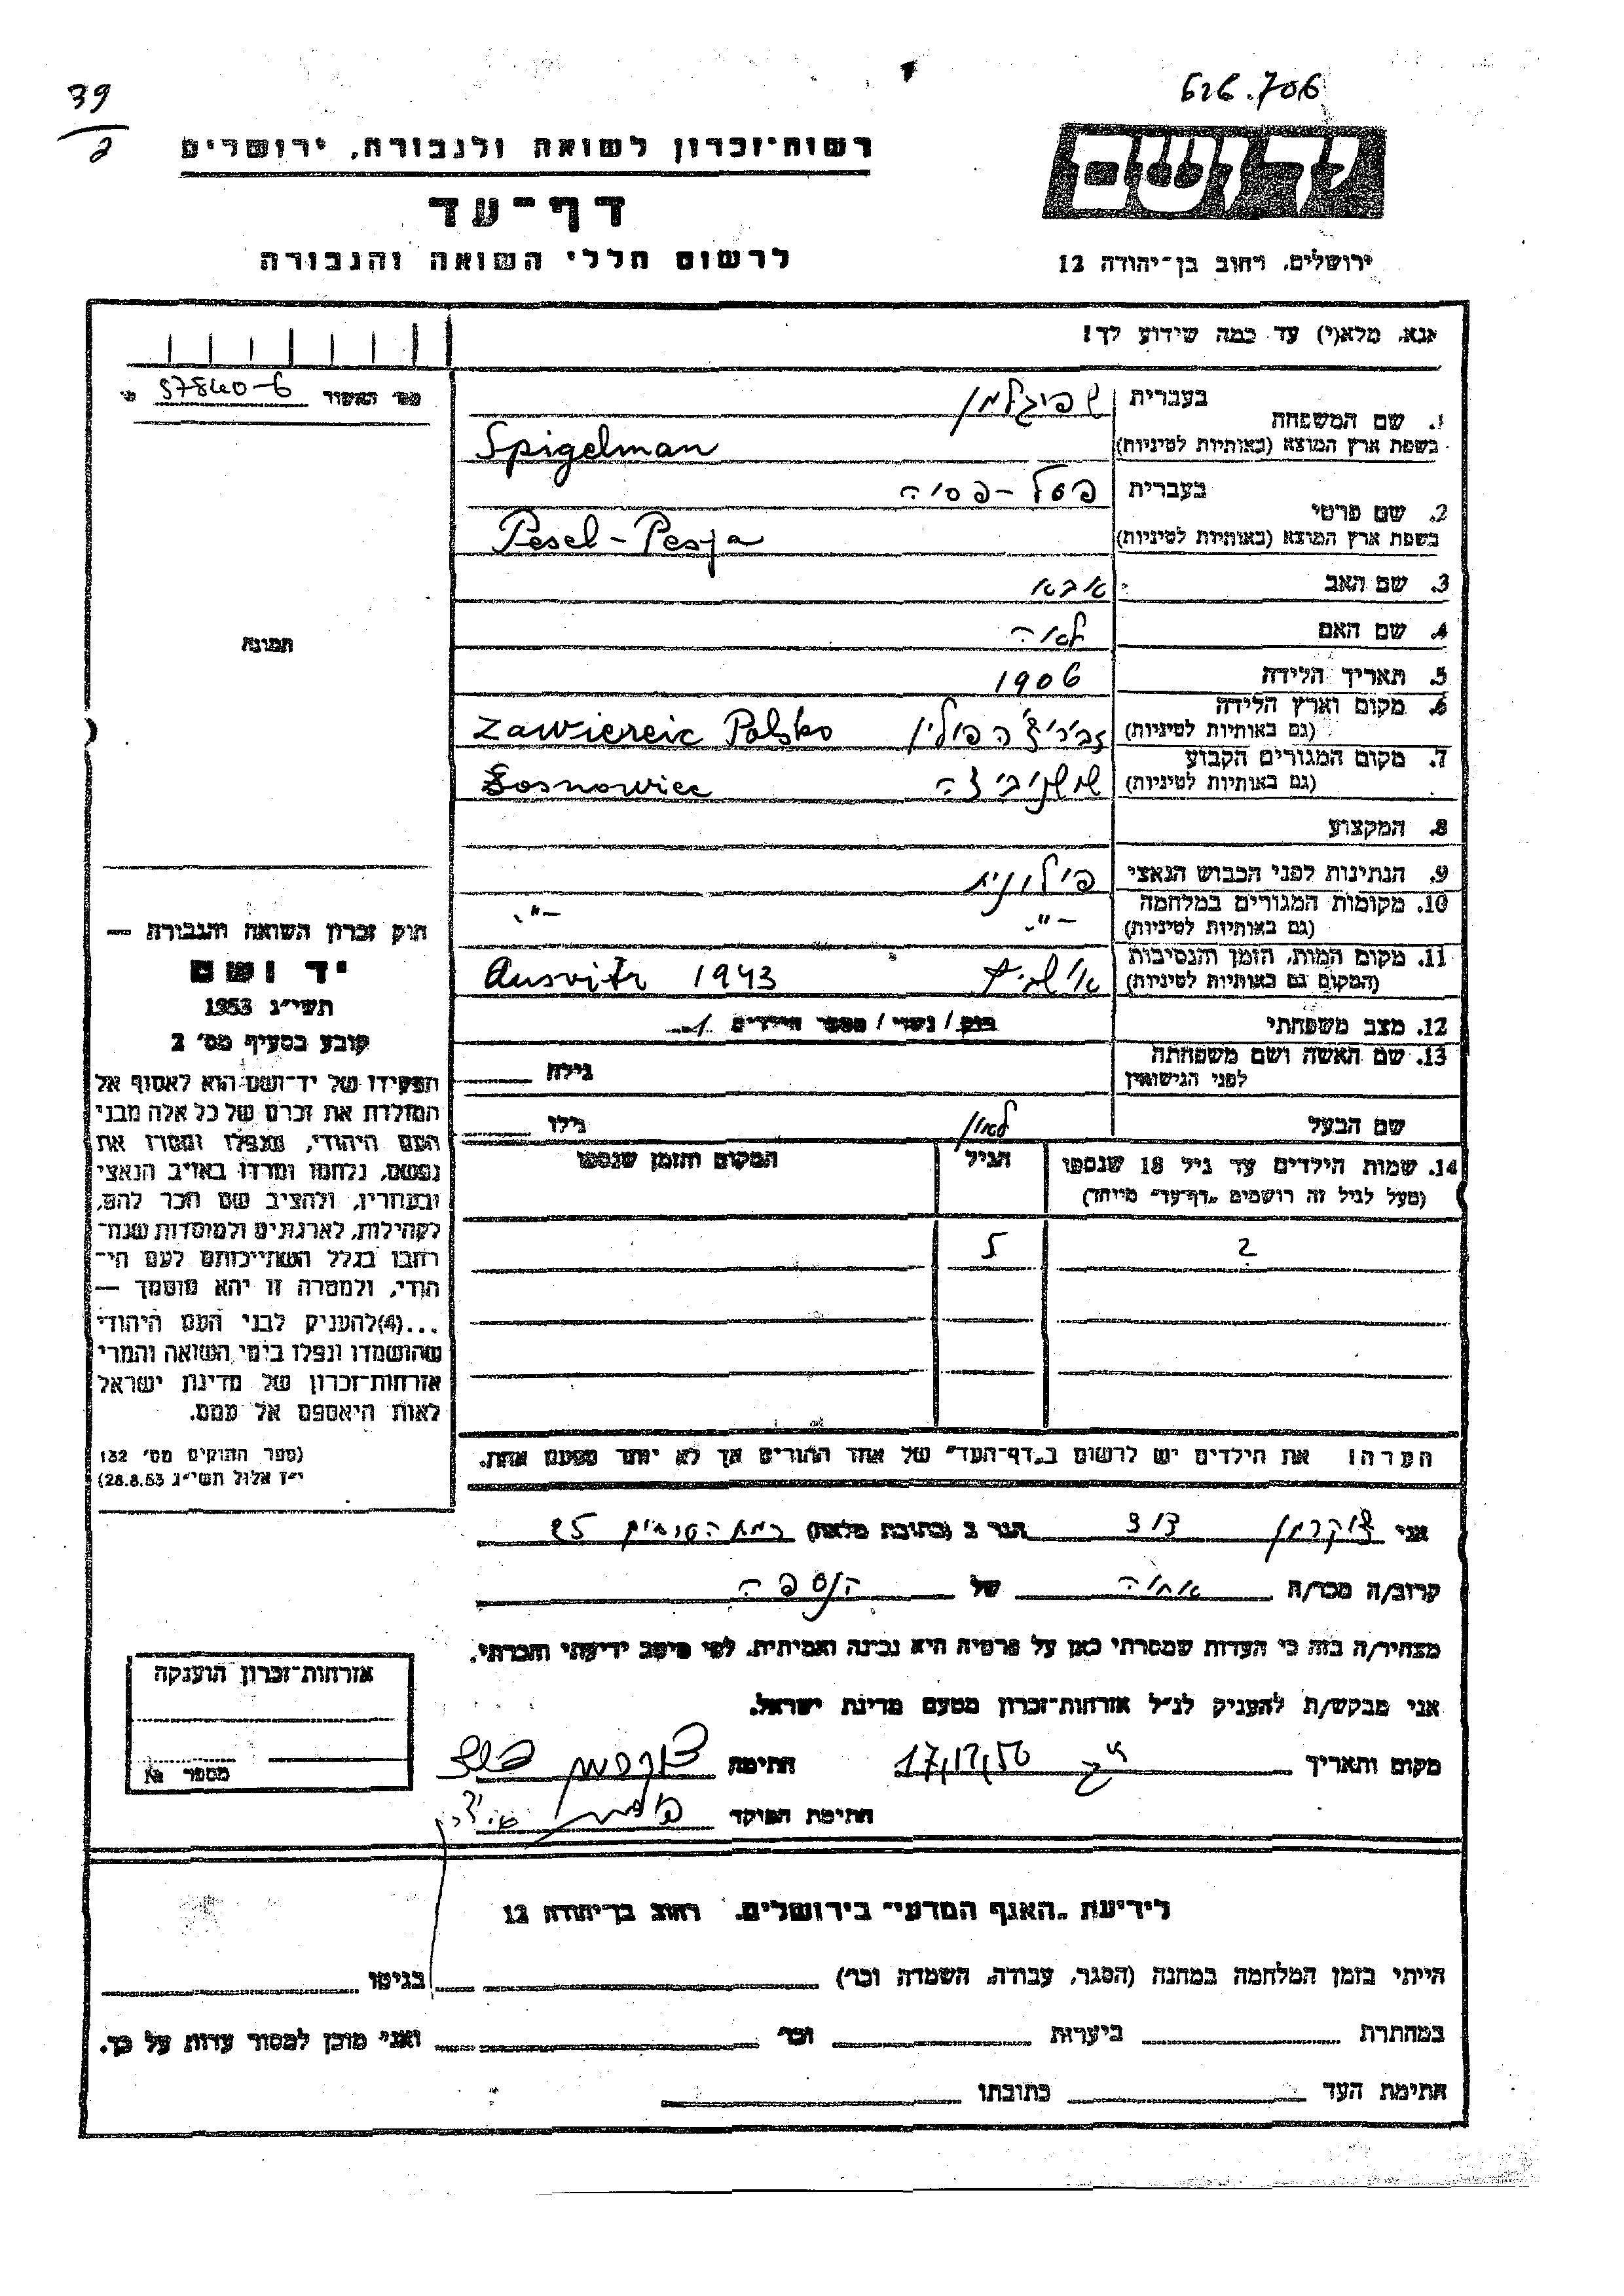 39
2
626.706
רשות־זכרון לשואה ולגבורה, ירושלים
דף־עד
לרשום חללי השואה והגבורה
יד ושם
ירושלים, רחוב בן־יהודה 12
אנא, מלא(י) עד כמה שידוע לך!
מס׳ האשור 97840-6
1. שם המשפחה
בעברית שפיגלמן
בשפת ארץ המוצא (באותיות לטיניות) Spigelman
2. שם פרטי
בעברית פסל-פסיה
בשפת ארץ המוצא (באותיות לטיניות) Pesel-Pesja
3. שם האב אבא
4. שם האם לאה
5. תאריך הלידה 1906
6. מקום וארץ הלידה
(גם באותיות לטיניות) פולין Zawiercie Polsko
7. מקום המגורים הקבוע
(גם באותיות לטיניות) Sosnowiec
8. המקצוע
9. הנתינות לפני הכבוש הנאצי פולונית
10. מקומות המגורים במלחמה
(גם באותיות לטיניות) -"- -"-
11. מקום המות, הזמן והנסיבות
(המקום גם באותיות לטיניות) אושויץ Ausvitz 1943
12. מצב משפחתי רוק / נשוי / מספר הילדים 1
13. שם האשה ושם משפחתה
לפני הנישואין
גילה
שם הבעל לאון גילו
14. שמות הילדים עד גיל 18 שנספו
(מעל לגיל זה רושמים „דף־עד” מיוחד)
הגיל
המקום והזמן שנספו
? 5
הערה! את הילדים יש לרשום ב„דף־העד” של אחד ההורים אך לא יותר מפעם אחת.
תמונה
חוק זכרון השואה והגבורה —
יד ושם
תשי״ג 1953
קובע בסעיף מס׳ 2
תפקידו של יד־ושם הוא לאסוף אל
המולדת את זכרם של כל אלה מבני
העם היהודי, שנפלו ומסרו את
נפשם, נלחמו ומרדו באויב הנאצי
ובעוזריו, ולהציב שם וזכר להם,
לקהילות, לארגונים ולמוסדות שנח־
רבו בגלל השתייכותם לעם הי־
הודי, ולמטרה זו יהא מוסמך —
...(4)להעניק לבני העם היהודי
שהושמדו ונפלו בימי השואה והמרי
אזרחות־זכרון של מדינת ישראל
לאות היאספם אל עמם.
(ספר החוקים מס׳ 132
י״ז אלול תשי״ג 28.8.53)
אני צוקרמן דוד הגר ב (כתובת מלאה) 25
קרוב/ה מכר/ה אחיה של הנספה
מצהיר/ה בזה כי העדות שמסרתי כאן על פרטיה היא נכונה ואמיתית, לפי מיטב ידיעתי והכרתי.
אני מבקש/ת להעניק לנ״ל אזרחות־זכרון מטעם מדינת ישראל.
מקום ותאריך 17/12/56 חתימה
חתימת הפוקד
אזרחות־זכרון הוענקה
מספר №
לידיעת „האגף המדעי” בירושלים, רחוב בן־יהודה 12
הייתי בזמן המלחמה במחנה (הסגר, עבודה, השמדה וכו׳) בגיטו
במחתרת ביערות וכו׳ ואני מוכן למסור עדות על כך.
חתימת העד כתובתו